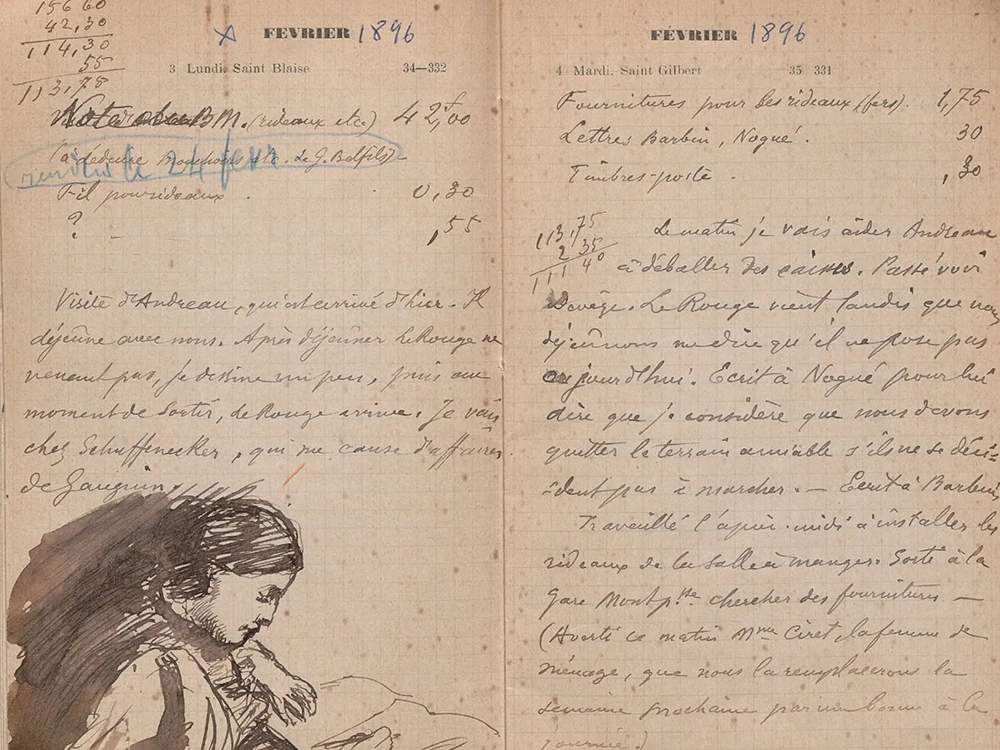 156 60
42,30
114,30
55
113,75
FEVRIER 1896
3 Lundi. Saint Blaise 34—332
B M. (rideaux etc) 42,00
rendus le 24 fevr
Fil pour rideaux. 0,30
? - ,55
Visite d'Andreau, qui est arrivé d'hier - Il
déjeûne avec nous. Après déjeûner Le Rouge ne
venant pas, je dessine un peu, puis au
moment de sortir, Le Rouge arrive. Je vais
chez Schuffenecker, qui me cause d'affaires
de Gauguin.
FÉVRIER 1896
4 Mardi. Saint Gilbert 35 331
Fournitures pour les rideaux (fers). 1,75
Lettres Barbin, Nogué. 30
Timbres-poste. ,30
113,75
2 35
114 40
Le matin je vais aider Andreau
à déballer des caisses. Passé voir
Le Rouge vient tandis que nous
déjeûnons me dire qu'il ne pose pas
aujourd'hui. Ecrit à Nogué pour lui
dire que je considère que nous devons
quitter le terrain amiable s'ils ne se déci-
-dent pas à marcher. — Ecrit à Barbin.
Travaillé l'après-midi à installer les
rideaux de la salle à manger. Sorti à la
Gare Montp.sse chercher des fournitures —
(Averti ce matin Mme Ciret, la femme de
ménage, que nous la remplacerons la
semaine prochaine par une bonne à la
journée.)